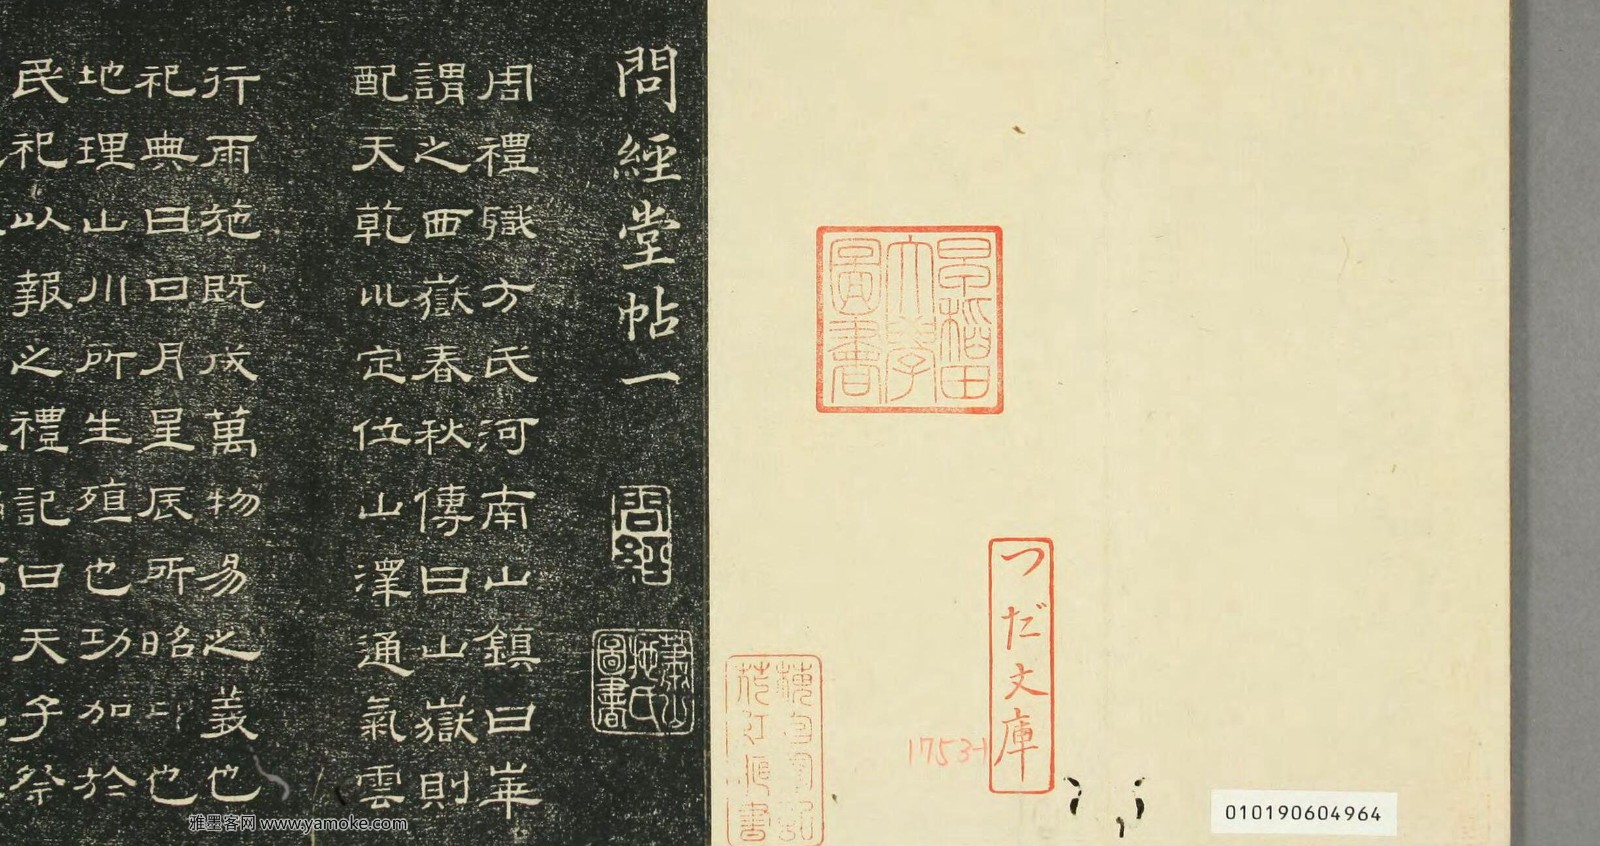 早稻田
大學
圖書
つだ文庫
1753-1
010190604964
問經堂帖一
問經
蕭山
施氏
圖書
周禮職方氏河南山鎮曰崋
謂之西嶽春秋傳曰山嶽則
配天乾𠃊定位山澤通氣雲
行雨施既成萬物易之義也
祀典曰日月星辰所昭卬也
地理山川所生殖也功加於
民祀以報之禮記曰天子祭
雅墨客网 www.yamoke.com